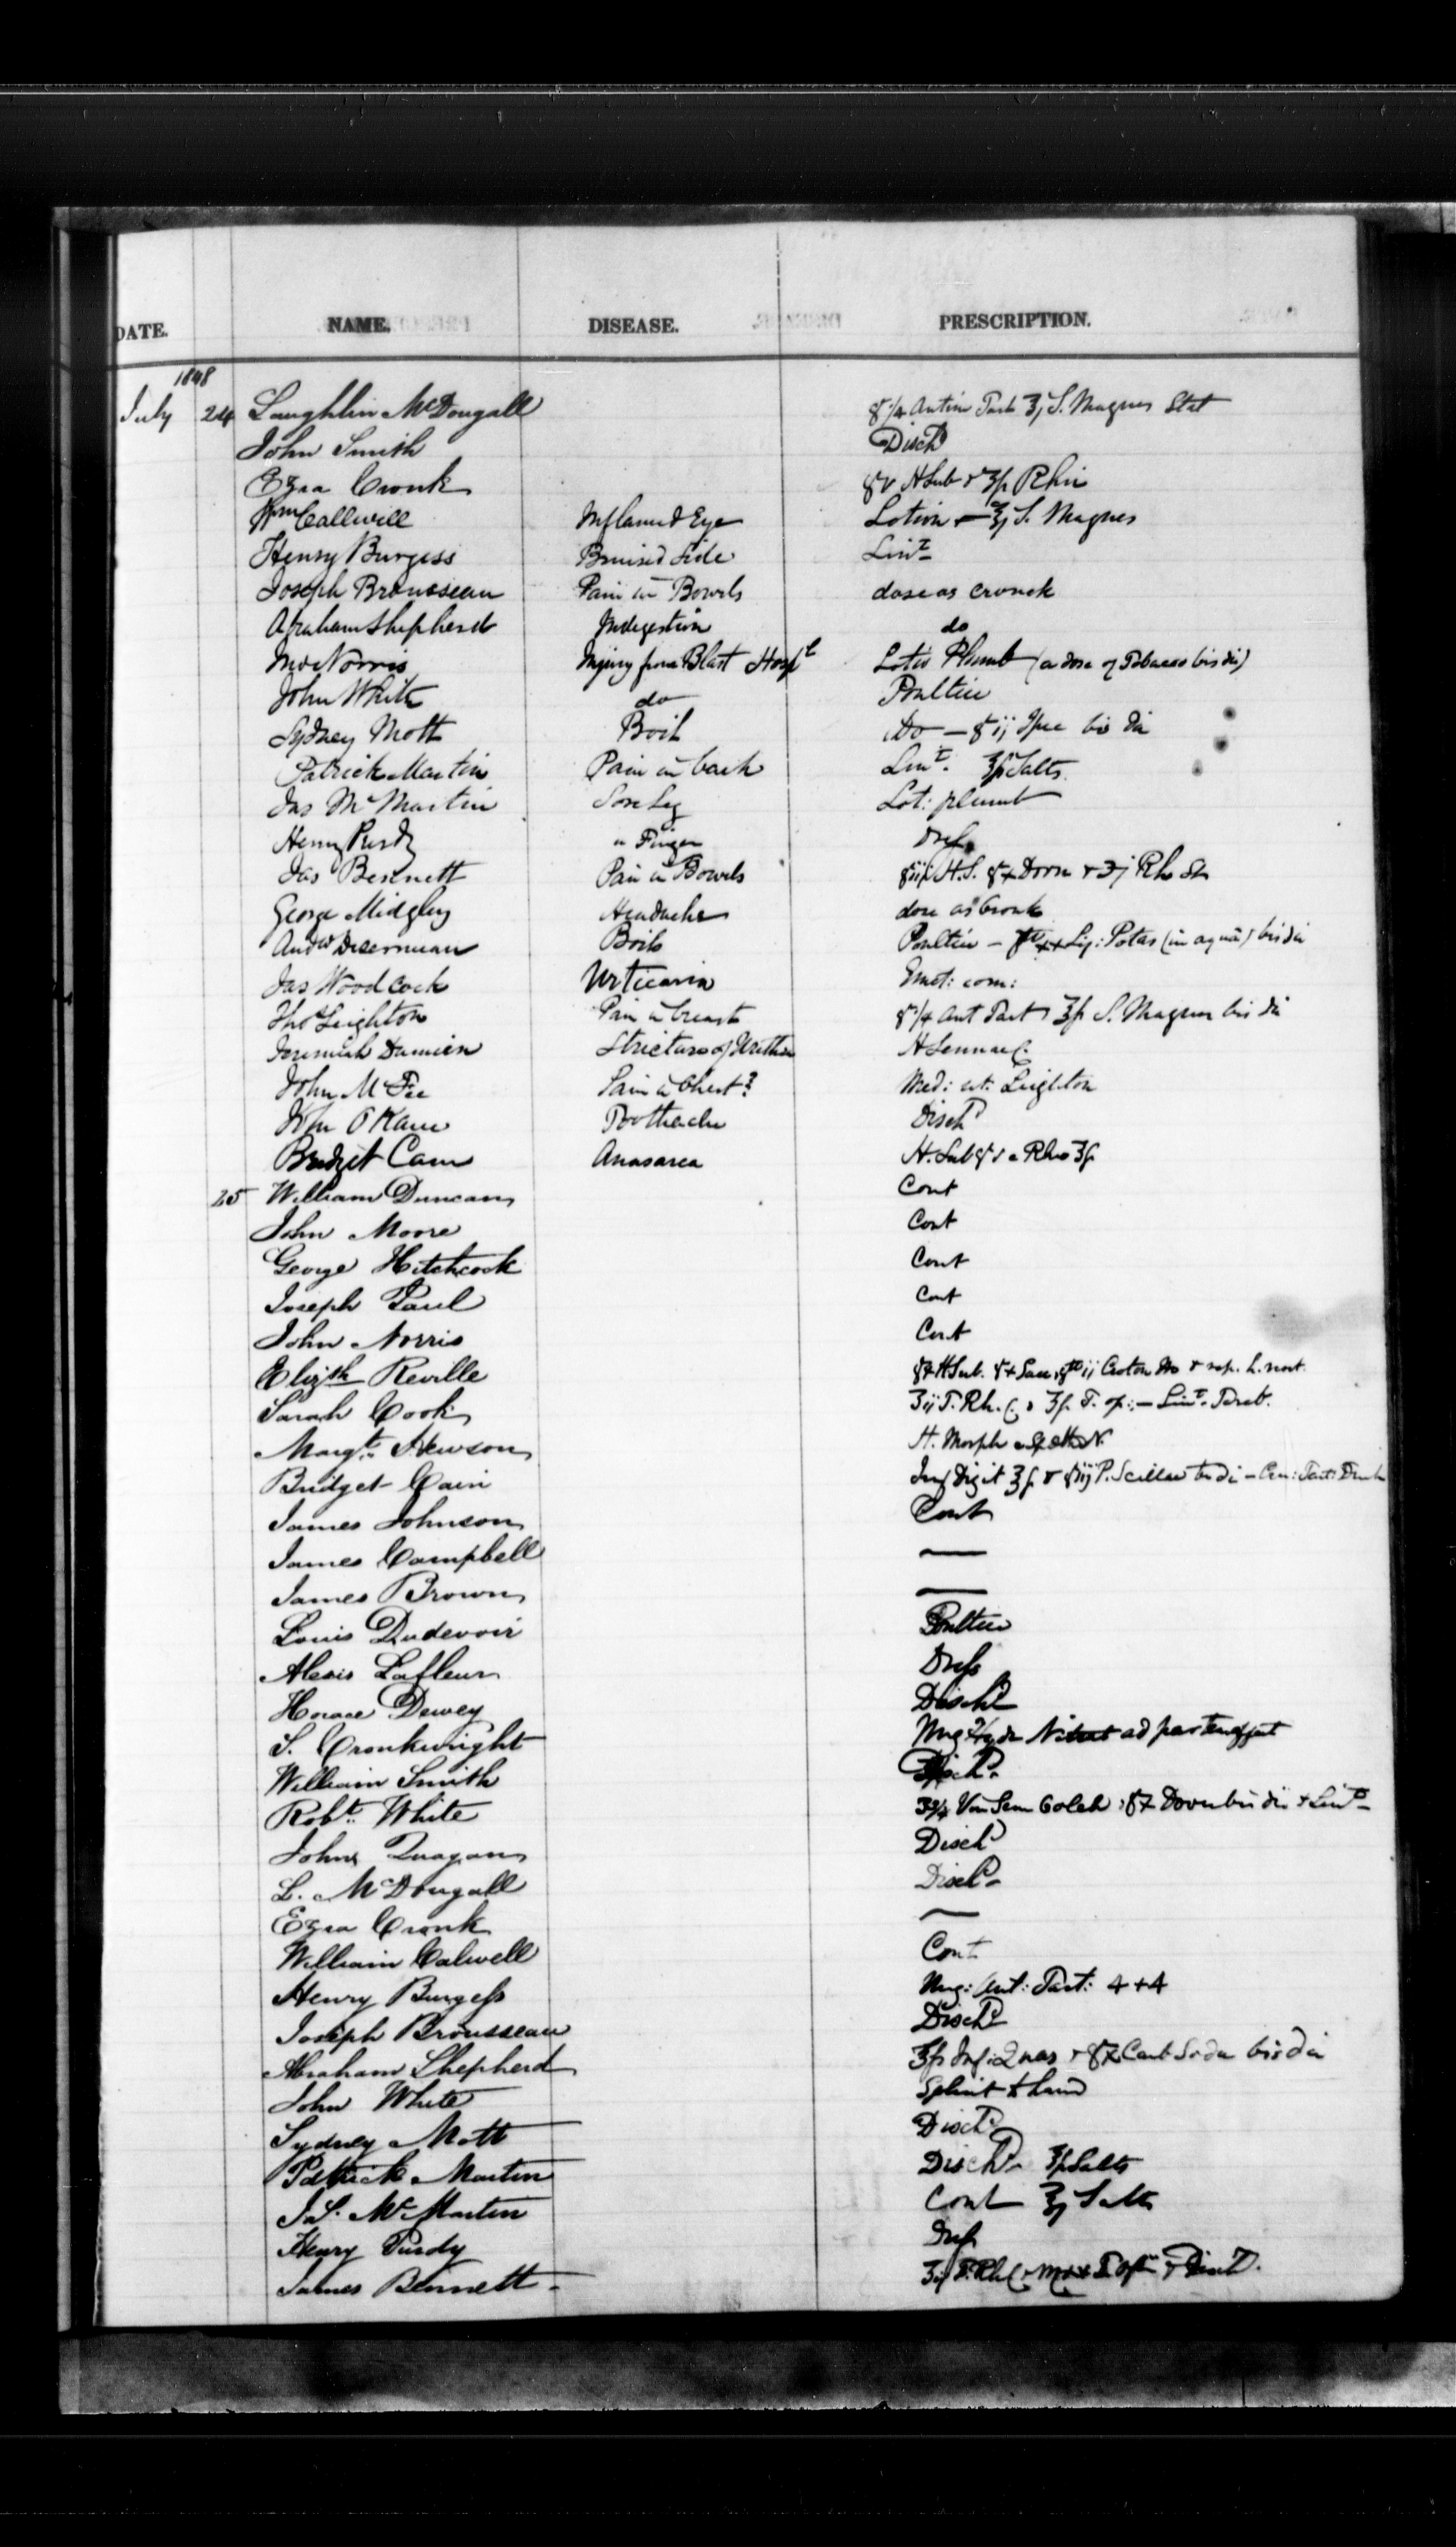 DATE. NAME. DISEASE. PRESCRIPTION.
1848
July 24 Laughlin McDougall gr 1/4 Antim Tart ʒj S. Magnes Stat
John Smith Dischd
Ezra Cronk gr v H Sub & ʒss Rhei
Wm Callwell Inflamed Eye Lotion + ʒj S. Magnes
Henry Burgess Bruised Side Lint
Joseph Brousseau Pain in Bowels dose as Cronck
Abraham Shepherd Indigestion do
Jno Norris Injury from Blast Hospl Lotio Plumb (a dose of Tobacco bis di)
John White do Poultice
Sydney Mott Boil Do — gr ij Ipec bis di
Patrick Martin Pain in back Lint. Salts
Jas McMartin Sore Leg Lot: plumb
Henry Purdy " Finger Dress
Jas Bennett Pain in Bowels H.S. gr x Dover & ʒj Rho St
George Midgley Headache dose as Cronk
Andw Boils Poultice — xx Liq: Potas (in aquâ) bis di
Jas Woodcock Urticaria Emet: com:
Thos Leighton Pain in breast gr 1/4 Ant Tart ʒss S. Magnes bis di
Jeremiah Damien Stricture of Urethra H Sennae C.
John McFee Pain in Chest? Med: ut: Leighton
Wm O'Kane Toothache Dischd
Bridget Cain Anasarca H. Sub gr v c Rho ʒss
25 William Duncan Cont
John Moore Cont
George Hitchcock Cont
Joseph Paul Cont
John Norris Cont
Elizth Reville gr x H Sub. gr x Sacc, gtt ij Croton & rep. h. noct.
Sarah Cook ʒij T. Rh. C. & ʒss T. op: — Lint. Tereb.
Margt. Hewson H. Morph
Bridget Cain Inf Digit ʒss & gr iij P. Scillae bis di — Cru: Tart: Drink
James Johnson Cont
James Campbell —
James Brown —
Louis Dudevoir Poultice
Alexis Lafleur Dress
Horace Dewey Dischd
S. Cronkwright Ung Hydr Nitrat ad partem
William Smith Dischd.
Robt. White Vin Sem Colch gr x Dover bis di & Lint
John Quagan Dischd
L. McDougall Dischd.
Ezra Cronk —
William Calwell Cont
Henry Burgess Ung: Ant: Tart: 4 + 4
Joseph Brousseau Dischd
Abraham Shepherd ʒss Inf: Quas & gr x Carb Soda bis di
John White Splint to hand
Sydney Mott Dischd
Patrick Martin Dischd. Salts
Jas. McMartin Cont ʒj Salts
Henry Purdy Dress
James Bennett. T. Rh C.